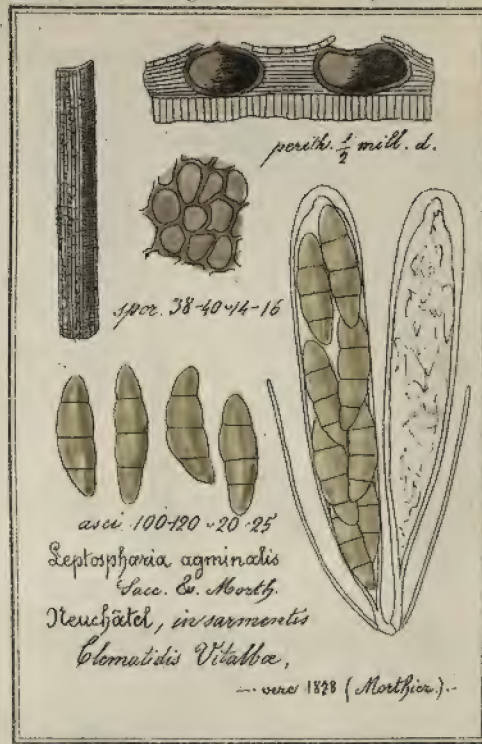 perith. 1/2 mill. d.
spor. 38-40 ~ 14-16
asci 100-120 ~ 20-25
Leptosphæria agminalis
Sacc. & Morth.
Neuchâtel, in sarmentis
Clematidis Vitalbæ,
— vere 1878 (Morthier.) —